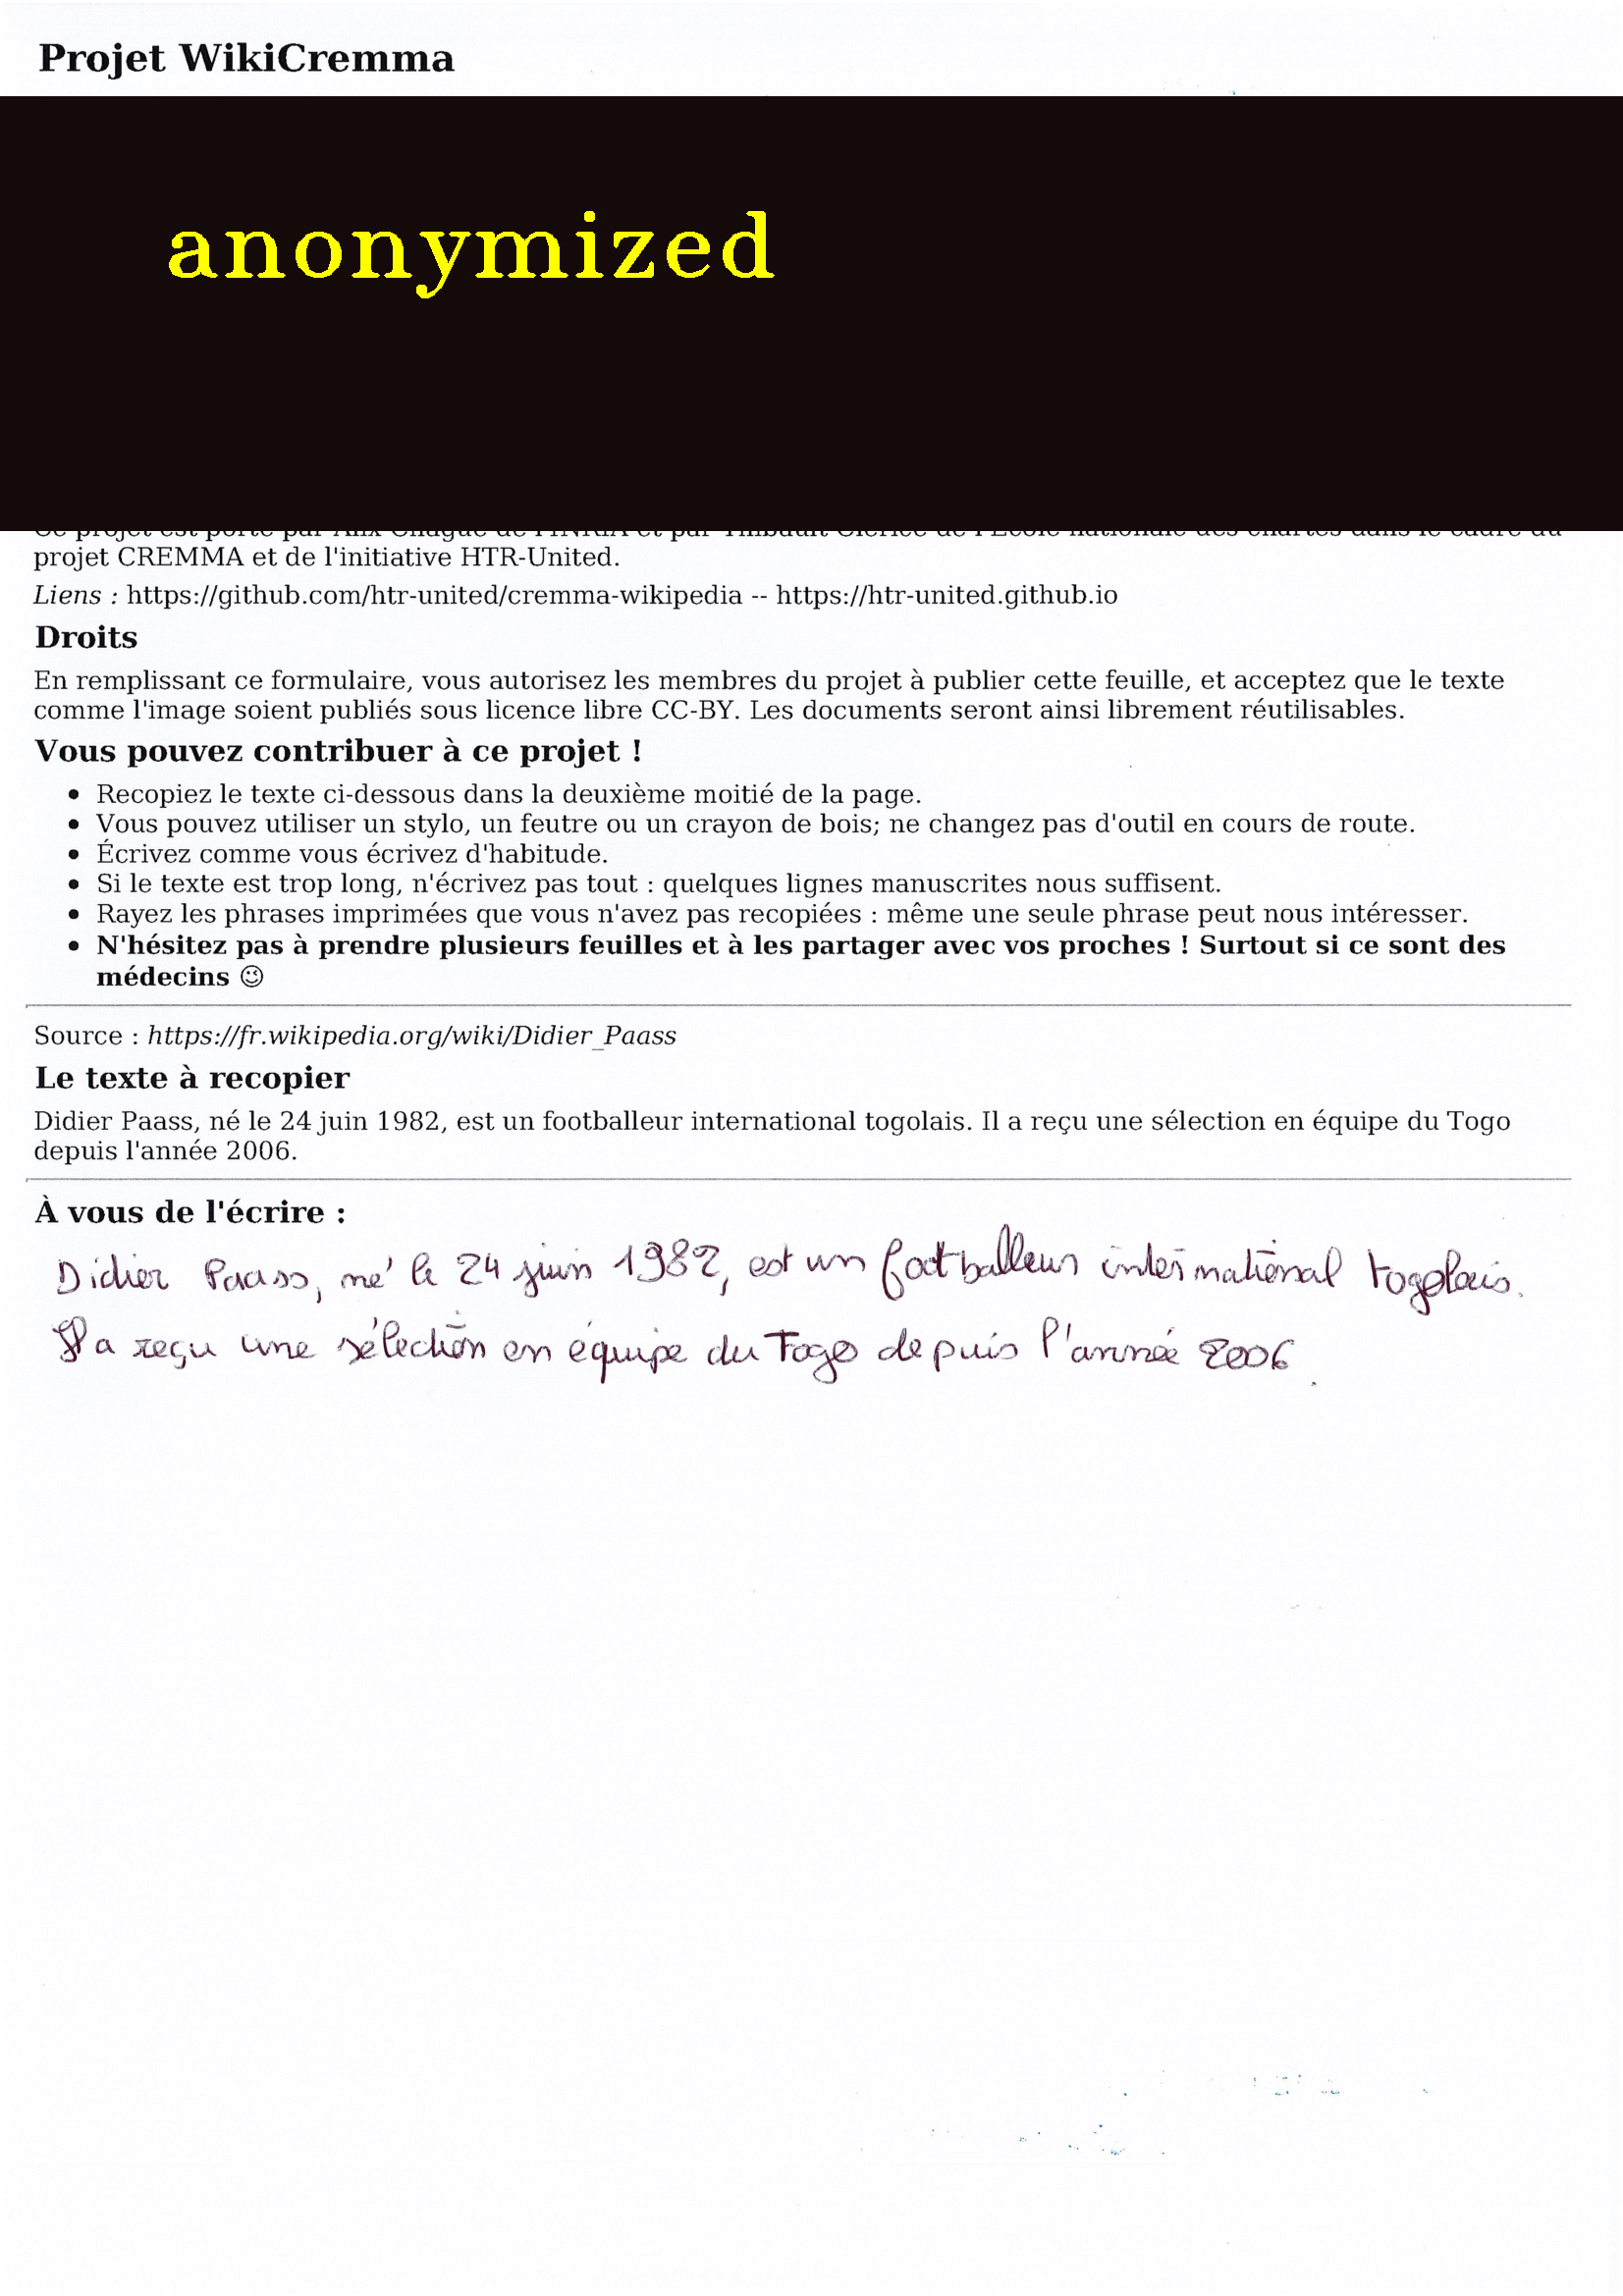 Projet WikiCremma
anonymized
Ce projet est porté par Alix Chagué de l'INRIA et par Thibault Clérice de l'École nationale des chartes dans le cadre du
projet CREMMA et de l'initiative HTR-United.
Liens : https://github.com/htr-united/cremma-wikipedia -- https://htr-united.github.io
Droits
En remplissant ce formulaire, vous autorisez les membres du projet à publier cette feuille, et acceptez que le texte
comme l'image soient publiés sous licence libre CC-BY. Les documents seront ainsi librement réutilisables.
Vous pouvez contribuer à ce projet !
• Recopiez le texte ci-dessous dans la deuxième moitié de la page.
• Vous pouvez utiliser un stylo, un feutre ou un crayon de bois; ne changez pas d'outil en cours de route.
• Écrivez comme vous écrivez d'habitude.
• Si le texte est trop long, n'écrivez pas tout : quelques lignes manuscrites nous suffisent.
• Rayez les phrases imprimées que vous n'avez pas recopiées : même une seule phrase peut nous intéresser.
• N'hésitez pas à prendre plusieurs feuilles et à les partager avec vos proches ! Surtout si ce sont des
médecins 😉
Source : https://fr.wikipedia.org/wiki/Didier_Paass
Le texte à recopier
Didier Paass, né le 24 juin 1982, est un footballeur international togolais. Il a reçu une sélection en équipe du Togo
depuis l'année 2006.
À vous de l'écrire :
Didier Paass, né le 24 juin 1982, est un footballeur international togolais.
Il a reçu une sélection en équipe du Togo depuis l'année 2006.